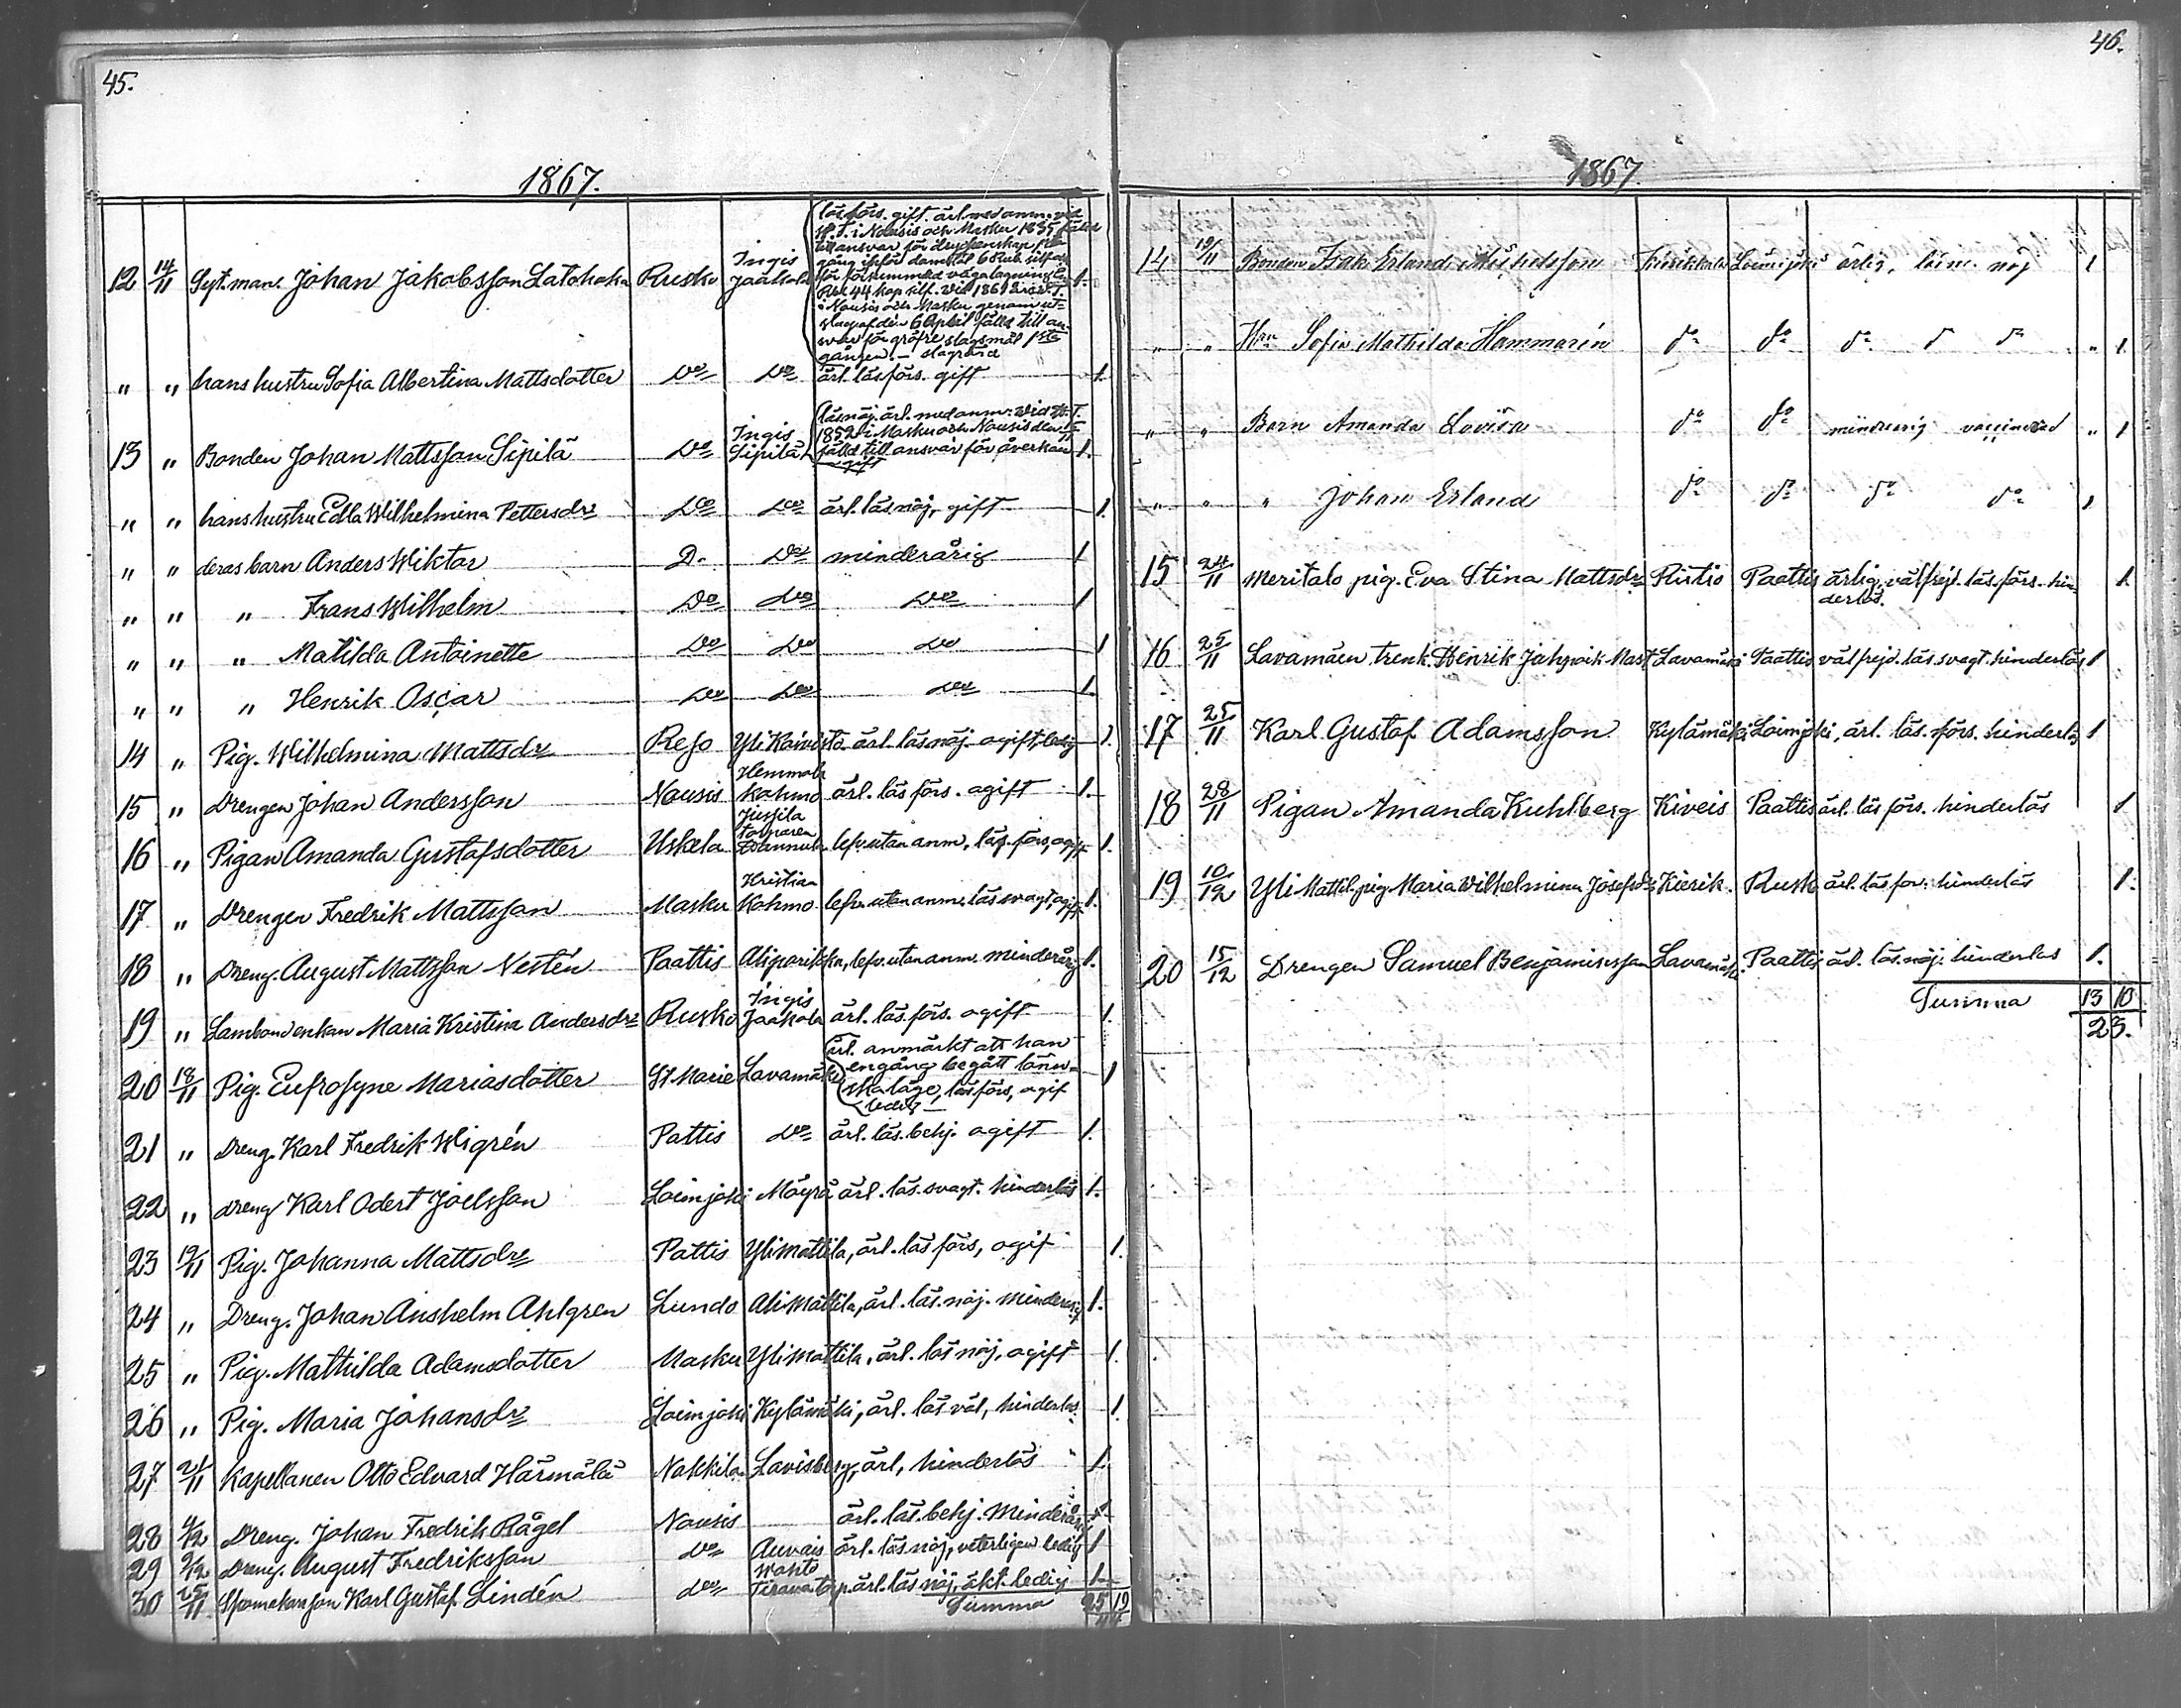 45.
1867.
12 14/11 Syt. man. Johan Jakobsson Latohaka Rusko Ingis Jaakola 1.
läs förs. gift. ärl. med anm. vid
W.T. i Nousis och Masku 1835 fälld
till ansvar för dryckenskap
gång ¨ 6 Rub. silf. och
för försummad väglagning
Rbl 44 kop silf. vid 1861 års W.T.
i Nousis och Masku genom ut-
slag af den 6 April fälld till an-
svar för gröfre slagsmål 1sta
gången. —
" " hans hustru Sofia Albertina Mattsdotter Do Do ärl. läs förs. gift 1.
läs nöj. ärl. med anm. vid W.T.
1852 i Masku och Nousis den
13 " Bonden Johan Mattsson Sipilä Do Ingis Sipilä fälld till ansvar för åverkan 1.
gift
" " hans hustru Edla Wilhelmina Pettersdr Do Do ärl. läs nöj, gift 1.
" " deras barn Anders Wiktor D. Do minderårig 1
" " " Frans Wilhelm Do Do Do 1
" " " Matilda Antoinette Do Do Do 1
" " " Henrik Oscar Do Do Do 1.
14 " Pig. Wilhelmina Mattsdr Reso Yli Kaivisto ärl. läs nöj. ogift, ledig 1.
15 " Drengen Johan Andersson Nousis Hemmola Kahmo ärl. läs förs. ogift 1.
16 " Pigan Amanda Gustafsdotter Uskela Jussila torparen lefv. utan anm, läs. förs, ogift 1.
17 " Drengen Fredrik Mattsson Masku Kristian Kahmo lefv. utan anm. läs svagt, ogift 1.
18 " Dreng. August Mattsson Nestén Paattis Aliparikka, lefv. utan anm. minderårig 1.
19 " Lambondenkan Maria Kristina Andersdr Rusko Ingis Jaakola ärl. läs. förs. ogift 1.
20 18/11 Pig. Eufrosyne Mariasdotter St Marie Lavamäki ärl. anmärkt att han 1
engång begått lönn-
skaläge, läs förs, ogif
ledig —
21 " Dreng. Karl Fredrik Wigrén Pattis Do ärl. läs. behj. ogift 1.
22 " dreng Karl Odert Joelsson Loimjoki Möyrä ärl. läs. svagt. hinderlös 1.
23 19/11 Pig. Johanna Mattsdr Pattis Ylimattila, ärl. läs förs, ogif 1.
24 " Dreng. Johan Anshelm Ahlgren Lundo Alimattila, ärl. läs. nöj. minderårig 1.
25 " Pig. Mathilda Adamsdotter Masku Ylimattila, ärl. läs nöj, ogift 1.
26 " Pig. Maria Johansdr Loimjoki Kylämäki, ärl. läs väl, hinderlös. 1.
27 21/11 Kapellanen Otto Edvard Härmälä Nakkila Lovisberg, ärl, hinderlös 1.
28 4/12 Dreng. Johan Fredrik Rågel Nousis ärl. läs. behj. minderårig 1
29 9/12 Dreng. August Fredriksson Do Auvais ärl. läs nöj, veterligen ledig 1
30 25/11 Karl Gustaf Lindén Do Wahto torp. ärl. läs nöj, äkt. ledig 1
Summa 25 19
44
46.
1867.
14 19/11 Bonden Isak Erland Michelsson Kierikkala Loimijoki ärlig, läsn. nöj 1
" " Hn Sofia Mathilda Hammarén do do do d do " 1
" " Barn Amanda Lovisa do do minderårig vaccinerad " 1
" " " Johan Erland do do do do 1
15 24/11 Meritalo pig. Eva Stina Mattsdr Riitio Paattis ärlig, välfrejd. läs. förs. hin- 1.
derlös.
16 25/11 Lavamäen trenk. Henrik Lavamäki Paattis välfrejd. läs. svagt. hinderlös 1
17 25/11 Karl Gustaf Adamsson Kylämäki Loimjoki, ärl. läs. förs. hinderlös 1
18 28/11 Pigan Amanda Kuhlberg Kiveis Paattis ärl. läs förs. hinderlös 1.
19 10/12 Yli Mattil. pig. Maria Wilhelmina Josefsdr Kierik. Rusk ärl. läs for. hinderlös 1.
20 15/12 Drengen Samuel Benjaminsson Lavamäki. Paattis ärl. läs. nöj. hinderlös 1.
Summa 13 10
23.